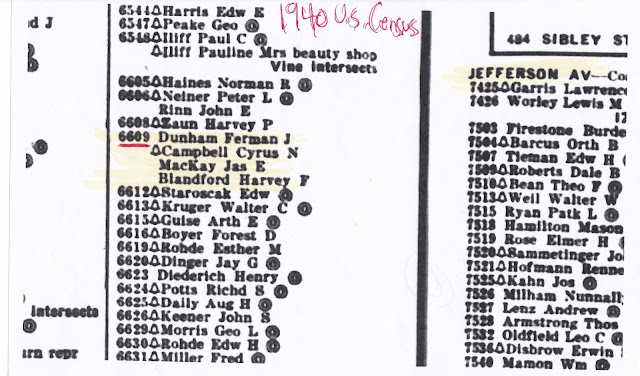 1940 U.S. Census
d J
intersects
rn repr
6544△Harris Edw E
6547△Peake Geo ⓞ
6548△Iliff Paul C ⓞ
△Iliff Pauline Mrs beauty shop
Vine intersects
6605△Haines Norman R ⓞ
6606△Neiner Peter L ⓞ
Rinn John E
6608△Zaun Harvey P
6609 Dunham Ferman J
△Campbell Cyrus N
MacKay Jas E
Blandford Harvey F
6612△Staroscak Edw ⓞ
6613△Kruger Walter C ⓞ
6615△Guise Arth E ⓞ
6616△Boyer Forest D
6619△Rohde Esther M
6620△Dinger Jay G ⓞ
6623 Diederich Henry ⓞ
6624△Potts Richd S ⓞ
6625△Daily Aug H ⓞ
6626△Keener John S
6629△Morris Geo L ⓞ
6630△Rohde Edw H ⓞ
6631△Miller Fred ⓞ
484 SIBLEY ST
JEFFERSON AV—Co
7425△Garris Lawrence
7426 Worley Lewis M
7503 Firestone Burde
7504△Barcus Orth B
7507 Tieman Edw H
7509△Roberts Dale B
7510△Bean Theo F ⓞ
7513△Well Walter W
7515 Ryan Patk L ⓞ
7518 Hamilton Mason
7519 Rose Elmer H
7520△Sammetinger Jo
7521△Hofmann Renne
7525△Kahn Jos ⓞ
7526 Milham Nunnall
7527 Lenz Andrew ⓞ
7528 Armstrong Thos
7532 Oldfield Leo C ⓞ
7536△Disbrow Erwin
7540 Mamon Wm ⓞ